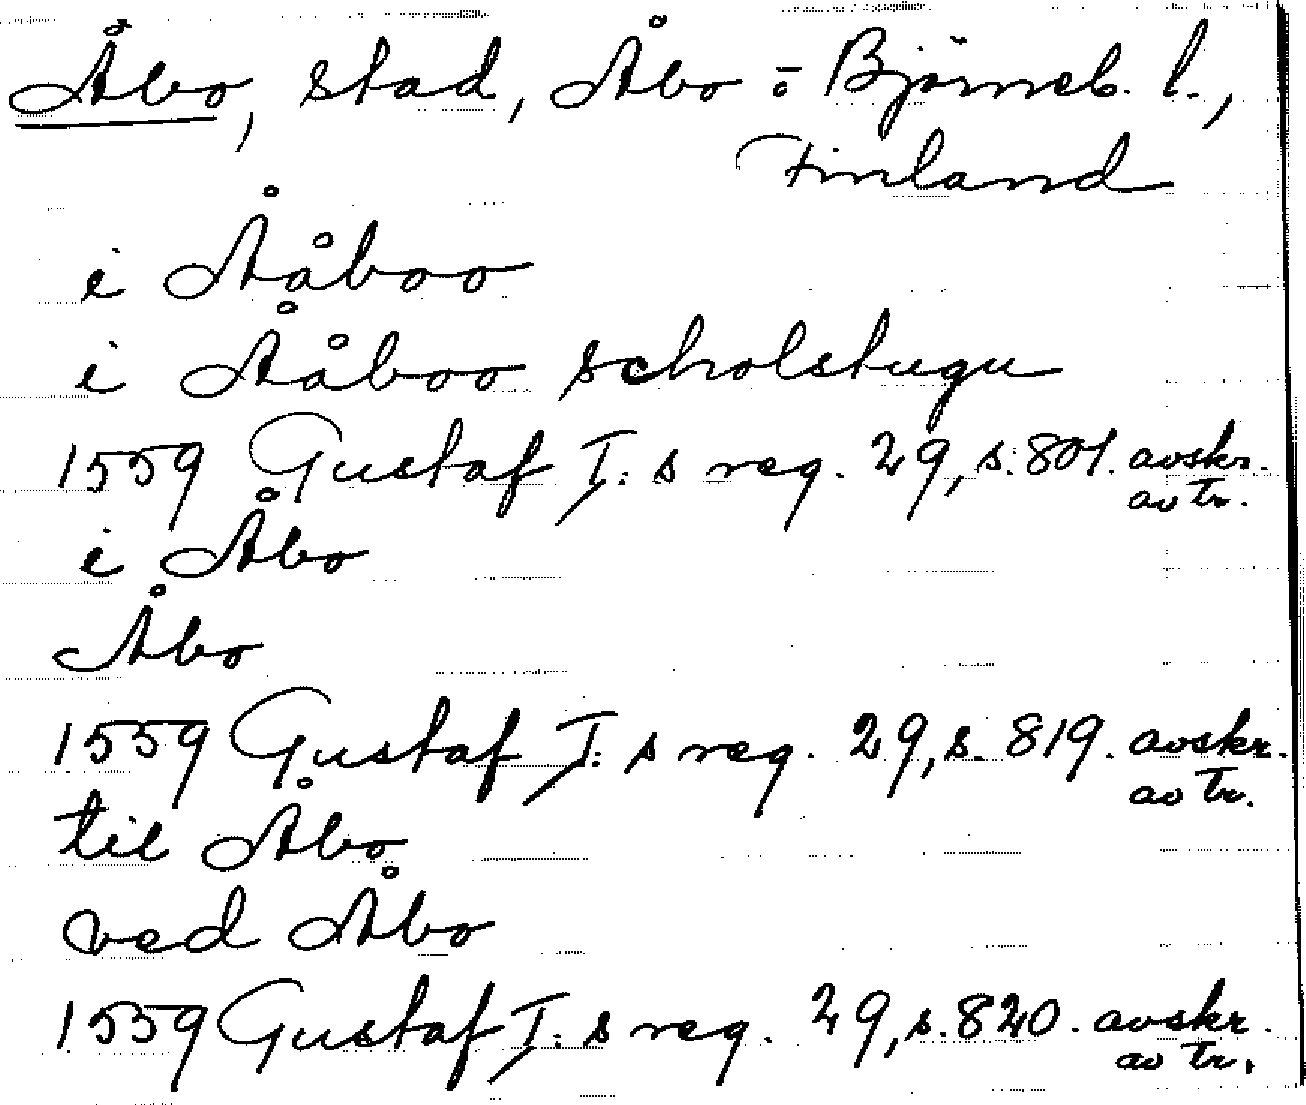 Åbo, stad, Åbo = Björneb. l.,
Finland
i Ååboo
i Ååboo scholstugu
1559 Gustaf I:s reg. 29, s. 801. avskr.
av tr.
i Åbo
Åbo
1559 Gustaf I:s reg. 29, s. 819. avskr.
av tr.
til Åbo
ved Åbo
1559 Gustaf I:s reg. 29, s. 820. avskr.
av tr.